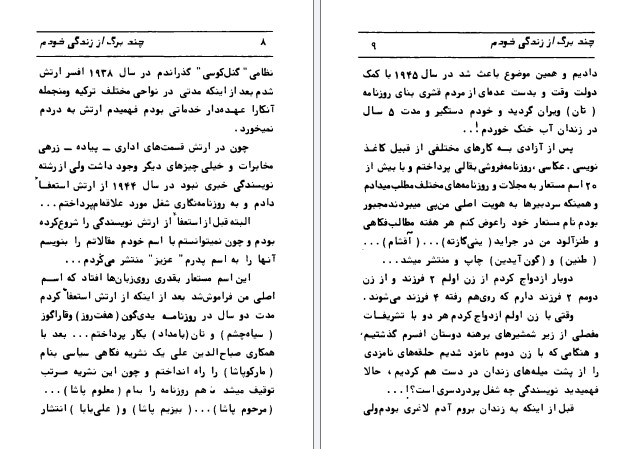 ۸ چند برگ از زندگی خودم
نظامی "گتل‌کوسی" گذراندم در سال ۱۹۳۸ افسر ارتش
شدم بعد از اینکه مدتی در نواحی مختلف ترکیه ومنجمله
آنکارا عهده‌دار خدماتی بودم فهمیدم ارتش به دردم
نمیخورد.
چون در ارتش قسمت‌های اداری ــ پیاده ــ زرهی
مخابرات و خیلی چیزهای دیگر وجود داشت ولی از رشته
نویسندگی خبری نبود در سال ۱۹۴۴ از ارتش استعفاً
دادم و به روزنامه‌نگاری شغل مورد علاقه‌ام‌پرداختم...
البته قبل از استعفاً از ارتش نویسندگی را شروع‌کرده
بودم و چون نمیتوانستم با اسم خودم مقالاتم را بنویسم
آنها را به اسم پدرم "عزیز" منتشر می‌کردم...
این اسم مستعار بقدری روی‌زبان‌ها افتاد که اسم
اصلی من فراموش‌شد بعد از اینکه از ارتش استعفاً کردم
مدت دو سال در روزنامه یدی‌گون (هفت‌روز) وقاراگوز
(سیاه‌چشم) و تان (بامداد) بکار پرداختم... بعد با
همکاری صباح‌الدین علی یک نشریه فکاهی سیاسی بنام
(مارکوپاشا) را راه انداختم و چون این نشریه مرتب
توقیف میشد با هم روزنامه را بنام (معلوم پاشا)...
(مرحوم پاشا)... (بیزیم پاشا) و (علی‌بابا) انتشار
چند برگ از زندگی خودم ۹
دادیم و همین موضوع باعث شد در سال ۱۹۴۵ با کمک
دولت وقت و بدست عده‌ای از مردم قشری بنای روزنامه
(تان) ویران گردید و خودم دستگیر و مدت ۵ سال
در زندان آب خنک خوردم!..
پس از آزادی به کارهای مختلفی از قبیل کاغذ
نویسی. عکاسی، روزنامه‌فروشی بقالی پرداختم و با بیش از
۲۰ اسم مستعار به مجلات و روزنامه‌های مختلف مطلب‌میدادم
و همینکه سردبیرها به هویت اصلی من‌پی میبردند‌مجبور
بودم نام مستعار خود را عوض کنم هر هفته مطالب‌فکاهی
و طنزآلود من در جراید (ینی‌گازته)... (آقشام)...
(طنین) و (گون آیدین) چاپ و منتشر میشد...
دوبار ازدواج کردم از زن اولم ۲ فرزند و از زن
دومم ۲ فرزند دارم که روی‌هم رفته ۴ فرزند می‌شوند.
وقتی با زن اولم ازدواج کردم هر دو با تشریفات
مفصلی از زیر شمشیرهای برهنه دوستان افسرم گذشتیم،
و هنگامی که با زن دومم نامزد شدیم حلقه‌های نامزدی
را از پشت میله‌های زندان در دست هم کردیم، حالا
فهمیدید نویسندگی چه شغل پردردسری است؟!...
قبل از اینکه به زندان بروم آدم لاغری بودم‌ولی